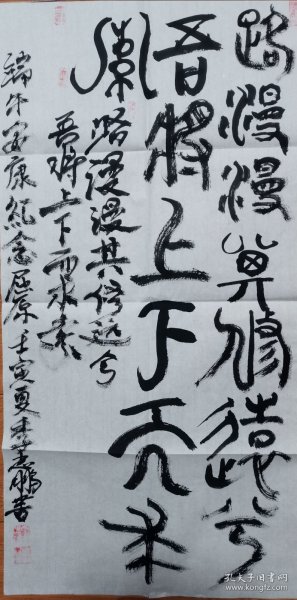 路漫漫其修远兮
吾将上下而求
索
路漫漫其修远兮
吾将上下而求索
端午安康纪念屈原壬寅夏
鹏书
孔夫子旧书网